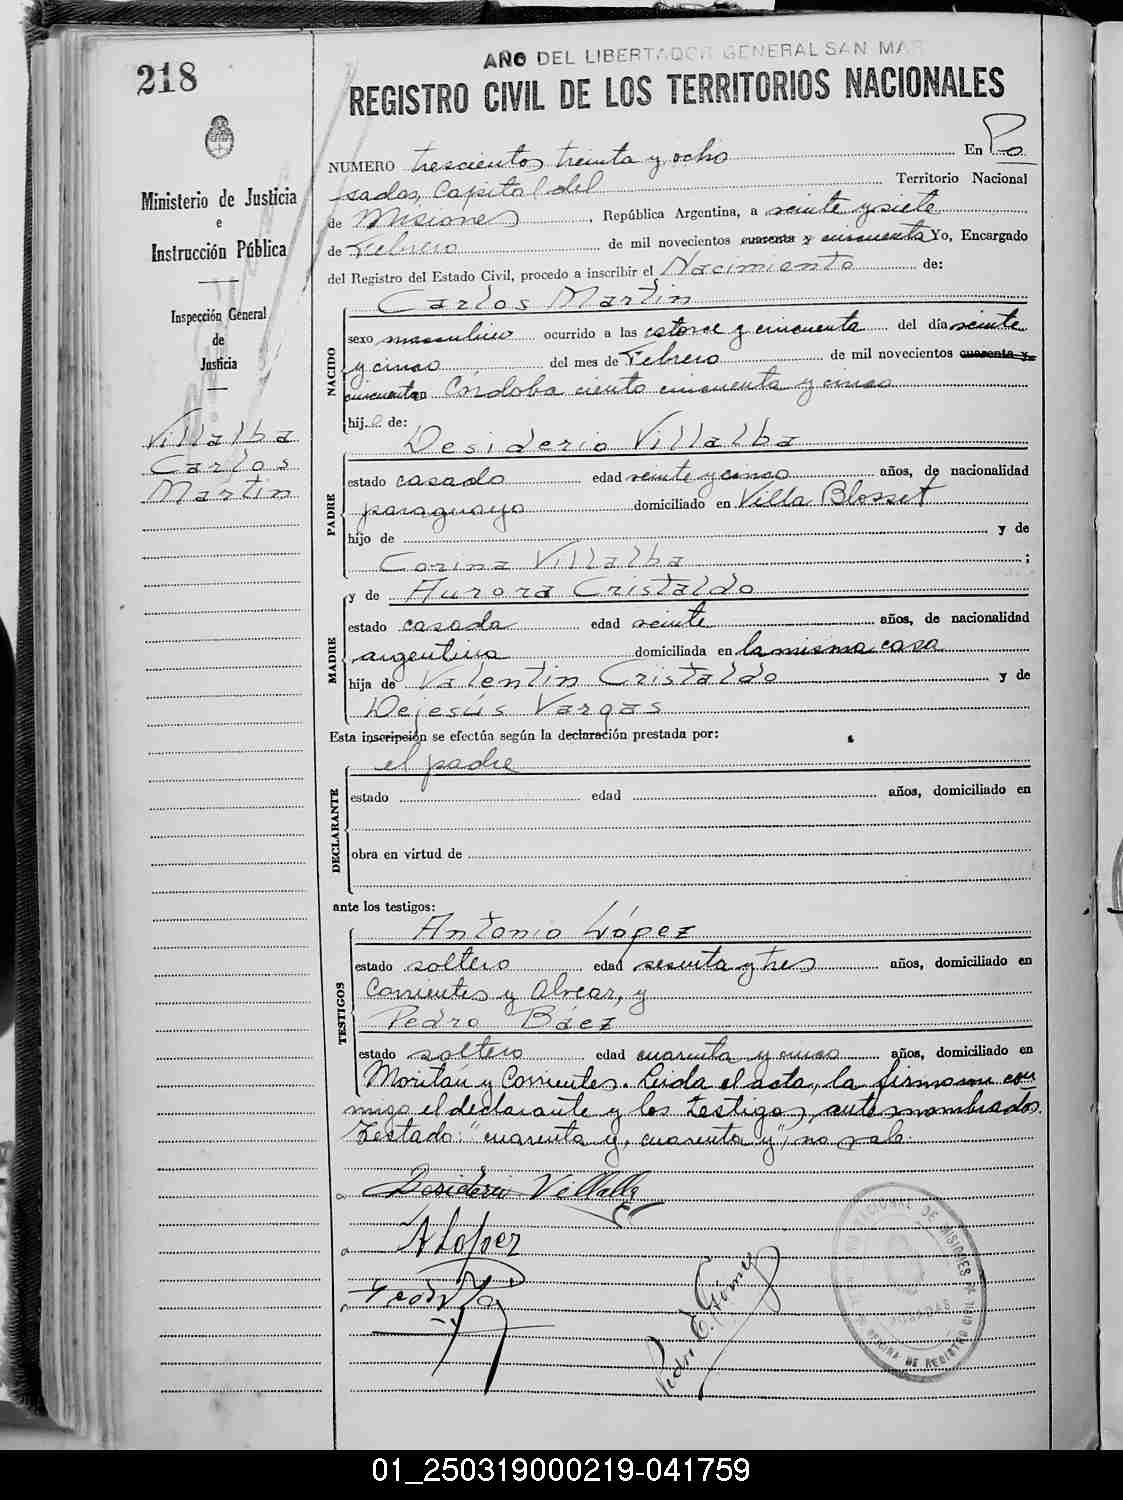 218
AÑO DEL LIBERTADOR GENERAL SAN MAR
REGISTRO CIVIL DE LOS TERRITORIOS NACIONALES
Ministerio de Justicia
e
Instrucción Pública
Inspección General
de
Justicia
Villalba
Carlos
Martin
NUMERO trescientos treinta y ocho En Po
sadas, Capital del Territorio Nacional
de Misiones, República Argentina, a veinte y siete
de Febrero de mil novecientos cuarenta y cincuenta Yo, Encargado
del Registro del Estado Civil, procedo a inscribir el Nacimiento de:
Carlos Martin
NACIDO
sexo masculino ocurrido a las catorce y cincuenta del día veinte
y cinco del mes de Febrero de mil novecientos cuarenta y
cincuenta en Córdoba ciento cincuenta y cinco
hijo de:
Desiderio Villalba
PADRE
estado casado edad veinte y cinco años, de nacionalidad
paraguayo domiciliado en Villa Blosset
hijo de y de
Corina Villalba ;
y de Aurora Cristaldo
MADRE
estado casada edad veinte años, de nacionalidad
argentina domiciliada en la misma casa
hija de Valentin Cristaldo y de
Dejesús Vargas
Esta inscripción se efectúa según la declaración prestada por:
el padre
DECLARANTE
estado edad años, domiciliado en
obra en virtud de
ante los testigos:
Antonio López
TESTIGOS
estado soltero edad sesenta y tres años, domiciliado en
Corrientes y Alvear, y
Pedro Báez
estado soltero edad cuarenta y cinco años, domiciliado en
Moritán y Corrientes. Leída el acta, la firmaron con
migo el declarante y los testigos, ante nombrados.
Testado: "cuarenta y, cuarenta y", no vale.
Desiderio Villalba
A López
Pedro E. Gómez
REGISTRO CIVIL
POSADAS
01_250319000219-041759